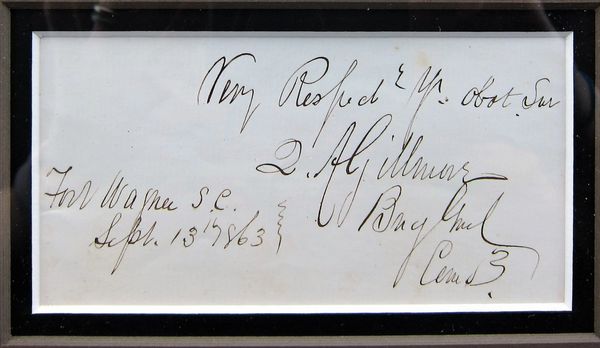 Very Respectd Yr. obdt. Svr
Q. A Gillmore
Fort Wagner S.C.
Brig Genl
Sept. 13th 1863
Comd.